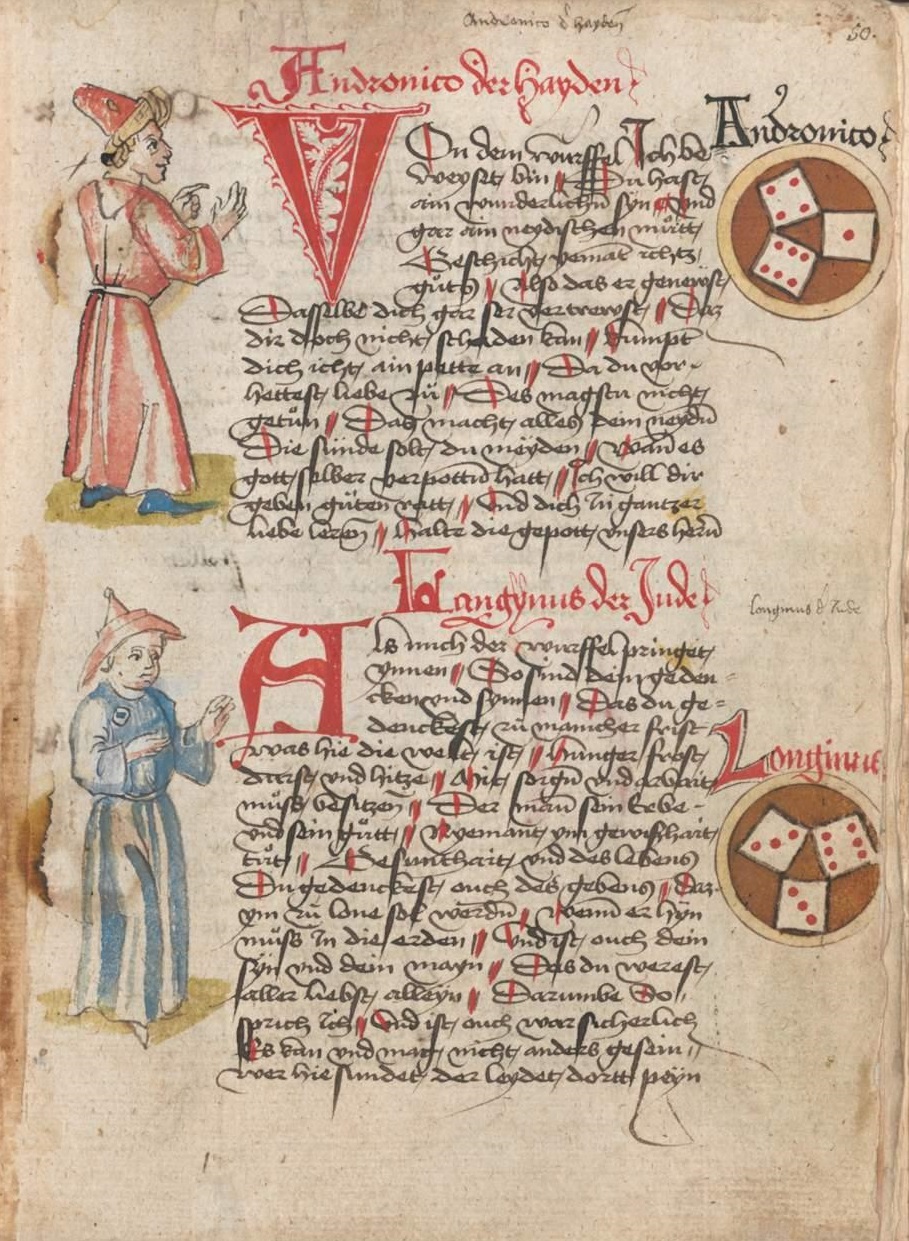 Andronico d' hayden
50.
Andronico der hayden
Andronico
Von dem wurffel Ich be
weyset bin // Du hast
ain wunderlichn syn // vnd
gar ain neydischen mutt
Geschicht yemat ichtz
guts // Also das er genewst
Dasselbe dich gar ser vertrewst // Daz
dir doch nicht schaden kan // kumpt
dich icht ain pette an // Da du vor-
hettest liebe zu // Des magstu nicht
getun // Das macht alles dein neydn
Die sunde solt du meyden // wan es
gott selber verpottn hatt // Ich will dir
geben guten ratt // vnd dich In gantzer
liebe leren // halte die gepott vnsers hern
Langynus der Jude
longinus d' Jude
Als mich der wurffel pringet
ynnen // So sind dein geden=
cken vnd synnen // Das du ge=
denckest zu mancher frist
was hie die welt ist // hunger frost
durst vnd hitze // Mit sorgn vnd arbait
muss besitzen // Der man sein
vnd sein gutt // Nyemant ym gewisshait
tut // Gesunthait vnd des lebens
Du gedenckest ouch des gebens // Daz
ym zu lone sol werdn // wenn er hyn
muss In die erden // Vnd ist ouch dein
syn vnd dein mayn // Das du werest
aller liebst alleyn // Darumbe So
sprich ich // Vnd ist ouch war sicherlich
Es kan vnd mag nicht anders gesein //
wer hie sundet der leydet dortt peyn
Longinus